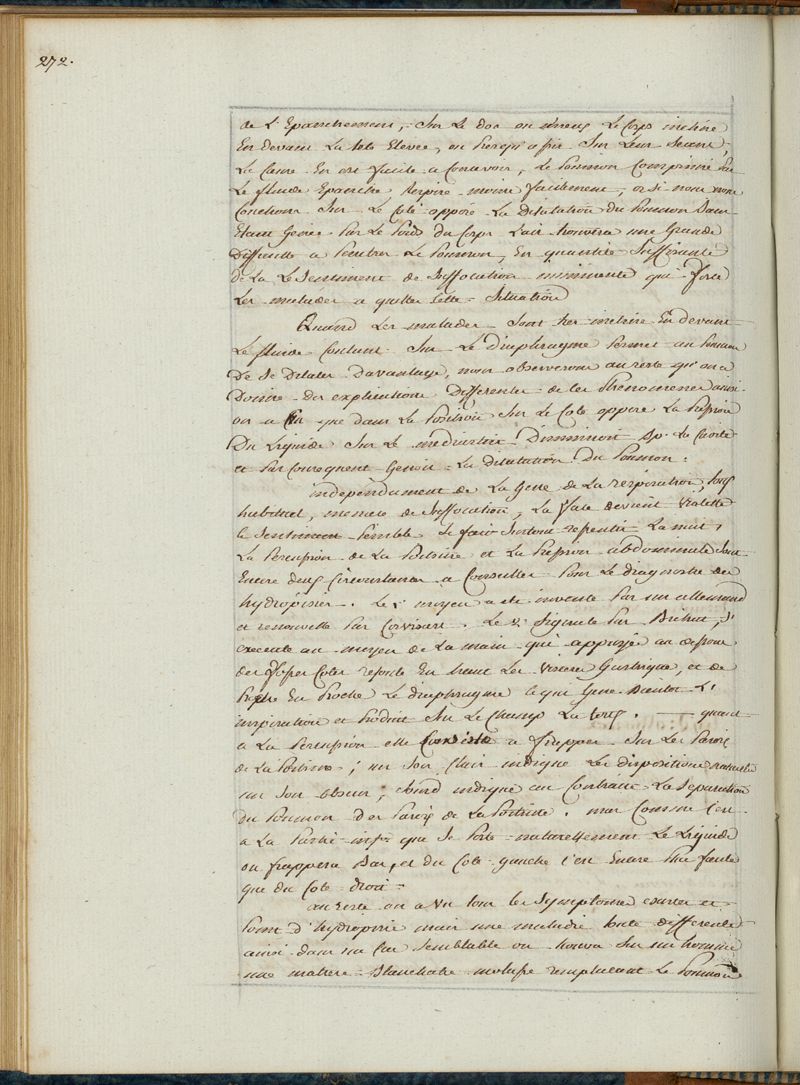 272.
de L'Epanchement, Sur Le dos ou mieux Le Corps incliné
En devant La tete Elevée, ou presqu'assis Sur Leur Seant,
La Cause En est facile a Concevoir, Le Poumon Comprimé Par
Le fluide Epanché Respire moins facilement, or si nous nous
Couchons Sur Le Coté opposé La dilatation du Poumon Sain
Etant Genée Par Le Poids du Corps L'air trouvera une Grande
Difficulté a Penetrer Le Poumon, En quantité Suffisante
de La Le Sentiment de Suffocation imminente qui force
Les malades a quitter Cette Situation
Quand Les malades Sont incliné En devant
Le fluide Coulant Sur Le Diaphragme Permet au Poumon
De Se Dilater Davantage, nous observerons au reste qu'on a
Donné des explications Differentes de Ces Phenomenes ainsi
on a que dans La Position Sur Le Coté opposé La Pression
Du Liquide Sur Le mediastin Diminuoit La Cavité
et Par Consequent Genoit La dilatation Du Poumon.
independament de La Gene de La respiration, toux
habituel, menace de Suffocation, La face devient violette
le Sentiment Penible Se fait Surtout ressentir La nuit,
La Percussion de La Poitrine et La Pression abdominale Sont
Encore deux Circonstances a Consulter Pour Le diagnostic des
hydropisies. Le 1r moyen a été inventé Par un allemand
et renouvellé Par Corvisart. Le 2e Signalé Par Bichat, S'
execute au moyen de La main qui appuyée au dessous
des fausses Cotes refoule En haut Les visceres Gastriques, et de
Proche En Proche Le diaphragme Ce qui Gene Bientot L'
inspiration et Produit Sur Le Champ La toux. — quant
a La Percussion elle Consiste a frapper Sur Les Parois
de La Poitrine; un Son Clair indique Les dispositions naturelles
un Son obscur, Sourd indique au Contraire La Separation
du Poumon des Parois de La Poitrine. mais Comme C'est
a La Partie infre que Se Porte naturellement Le Liquide
on frappera Bas, et du Coté gauche C'est Encore Plus facile
que du Coté droit.
au reste on a vu tous les Symptomes exister et
Point d'hydropisie mais une maladie toute differente
ainsi dans un Cas Semblable on trouva Sur un homme
une matiere Blanchatre remplacant Le Poumon